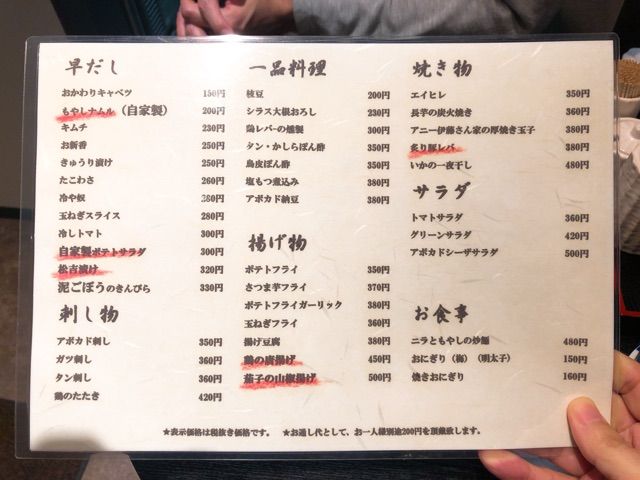 早だし
おかわりキャベツ 150円
もやしナムル（自家製） 200円
キムチ 230円
お新香 250円
きゅうり漬け 250円
たこわさ 260円
冷や奴 280円
玉ねぎスライス 280円
冷しトマト 300円
自家製ポテトサラダ 300円
松吉漬け 320円
泥ごぼうのきんぴら 330円
刺し物
アボカド刺し 350円
ガツ刺し 360円
タン刺し 360円
鶏のたたき 420円
一品料理
枝豆 200円
シラス大根おろし 230円
鶏レバーの燻製 300円
タン・かしらぽん酢 350円
鳥皮ぽん酢 350円
塩もつ煮込み 380円
アボカド納豆 380円
揚げ物
ポテトフライ 350円
さつま芋フライ 370円
ポテトフライガーリック 380円
玉ねぎフライ 360円
揚げ豆腐 380円
鶏の唐揚げ 450円
茄子の山椒揚げ 500円
焼き物
エイヒレ 350円
長芋の炭火焼き 360円
アニー伊藤さん家の厚焼き玉子 380円
炙り豚レバ 380円
いかの一夜干し 480円
サラダ
トマトサラダ 360円
グリーンサラダ 420円
アボカドシーザサラダ 500円
お食事
ニラともやしの炒麺 480円
おにぎり（梅）（明太子） 150円
焼きおにぎり 160円
★表示価格は税抜き価格です。 ★お通し代として、お一人様別途200円を頂戴致します。